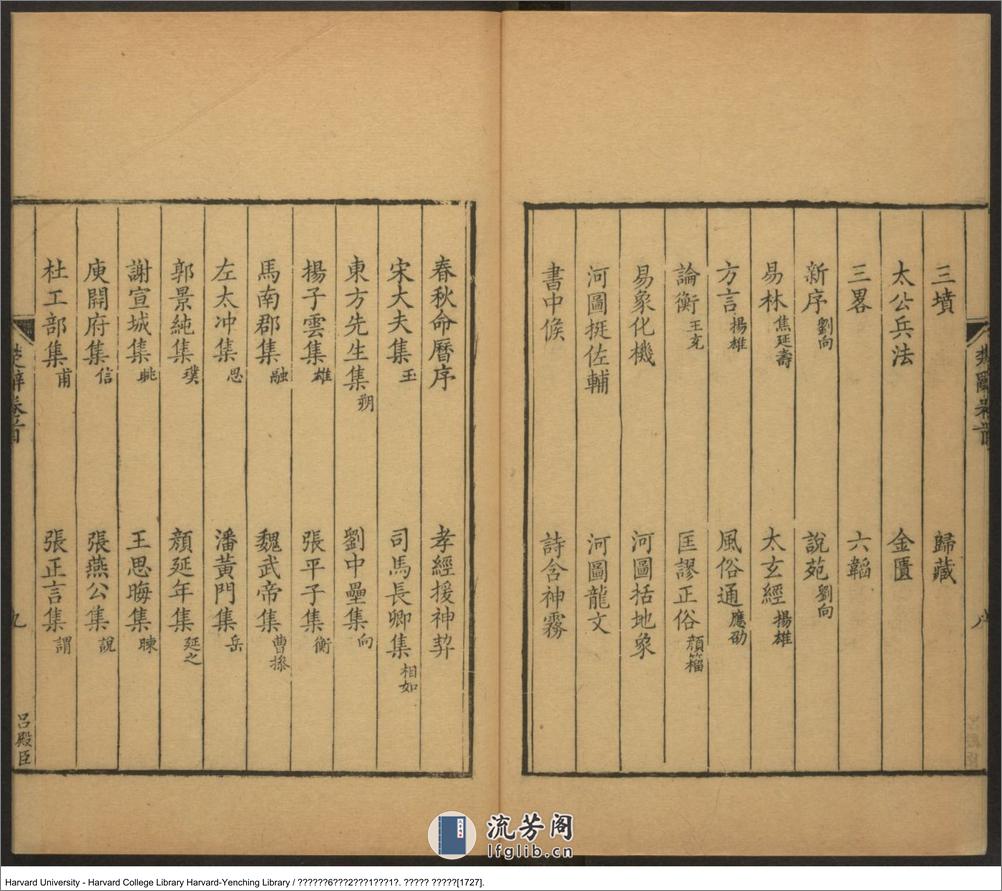 三墳 歸藏
太公兵法 金匱
三畧 六韜
新序 劉向 說苑 劉向
易林 焦延壽 太玄經 揚雄
方言 揚雄 風俗通 應劭
論衡 王充 匡謬正俗 顔籀
易象化機 河圖括地象
河圖挺佐輔 河圖龍文
書中候 詩含神霧
春秋命曆序 孝經援神契
宋大夫集 玉 司馬長卿集 相如
東方先生集 朔 劉中壘集 向
揚子雲集 雄 張平子集 衡
馬南郡集 融 魏武帝集 曹操
左太冲集 思 潘黃門集 岳
郭景純集 璞 顏延年集 延之
謝宣城集 朓 王思晦集 暕
庾開府集 信 張燕公集 說
杜工部集 甫 張正言集 謂
楚辭卷首 九 呂殿臣
流芳阁
lfglib.cn
Harvard University - Harvard College Library Harvard-Yenching Library / ??????6???2???1???1?. ????? ?????[1727].